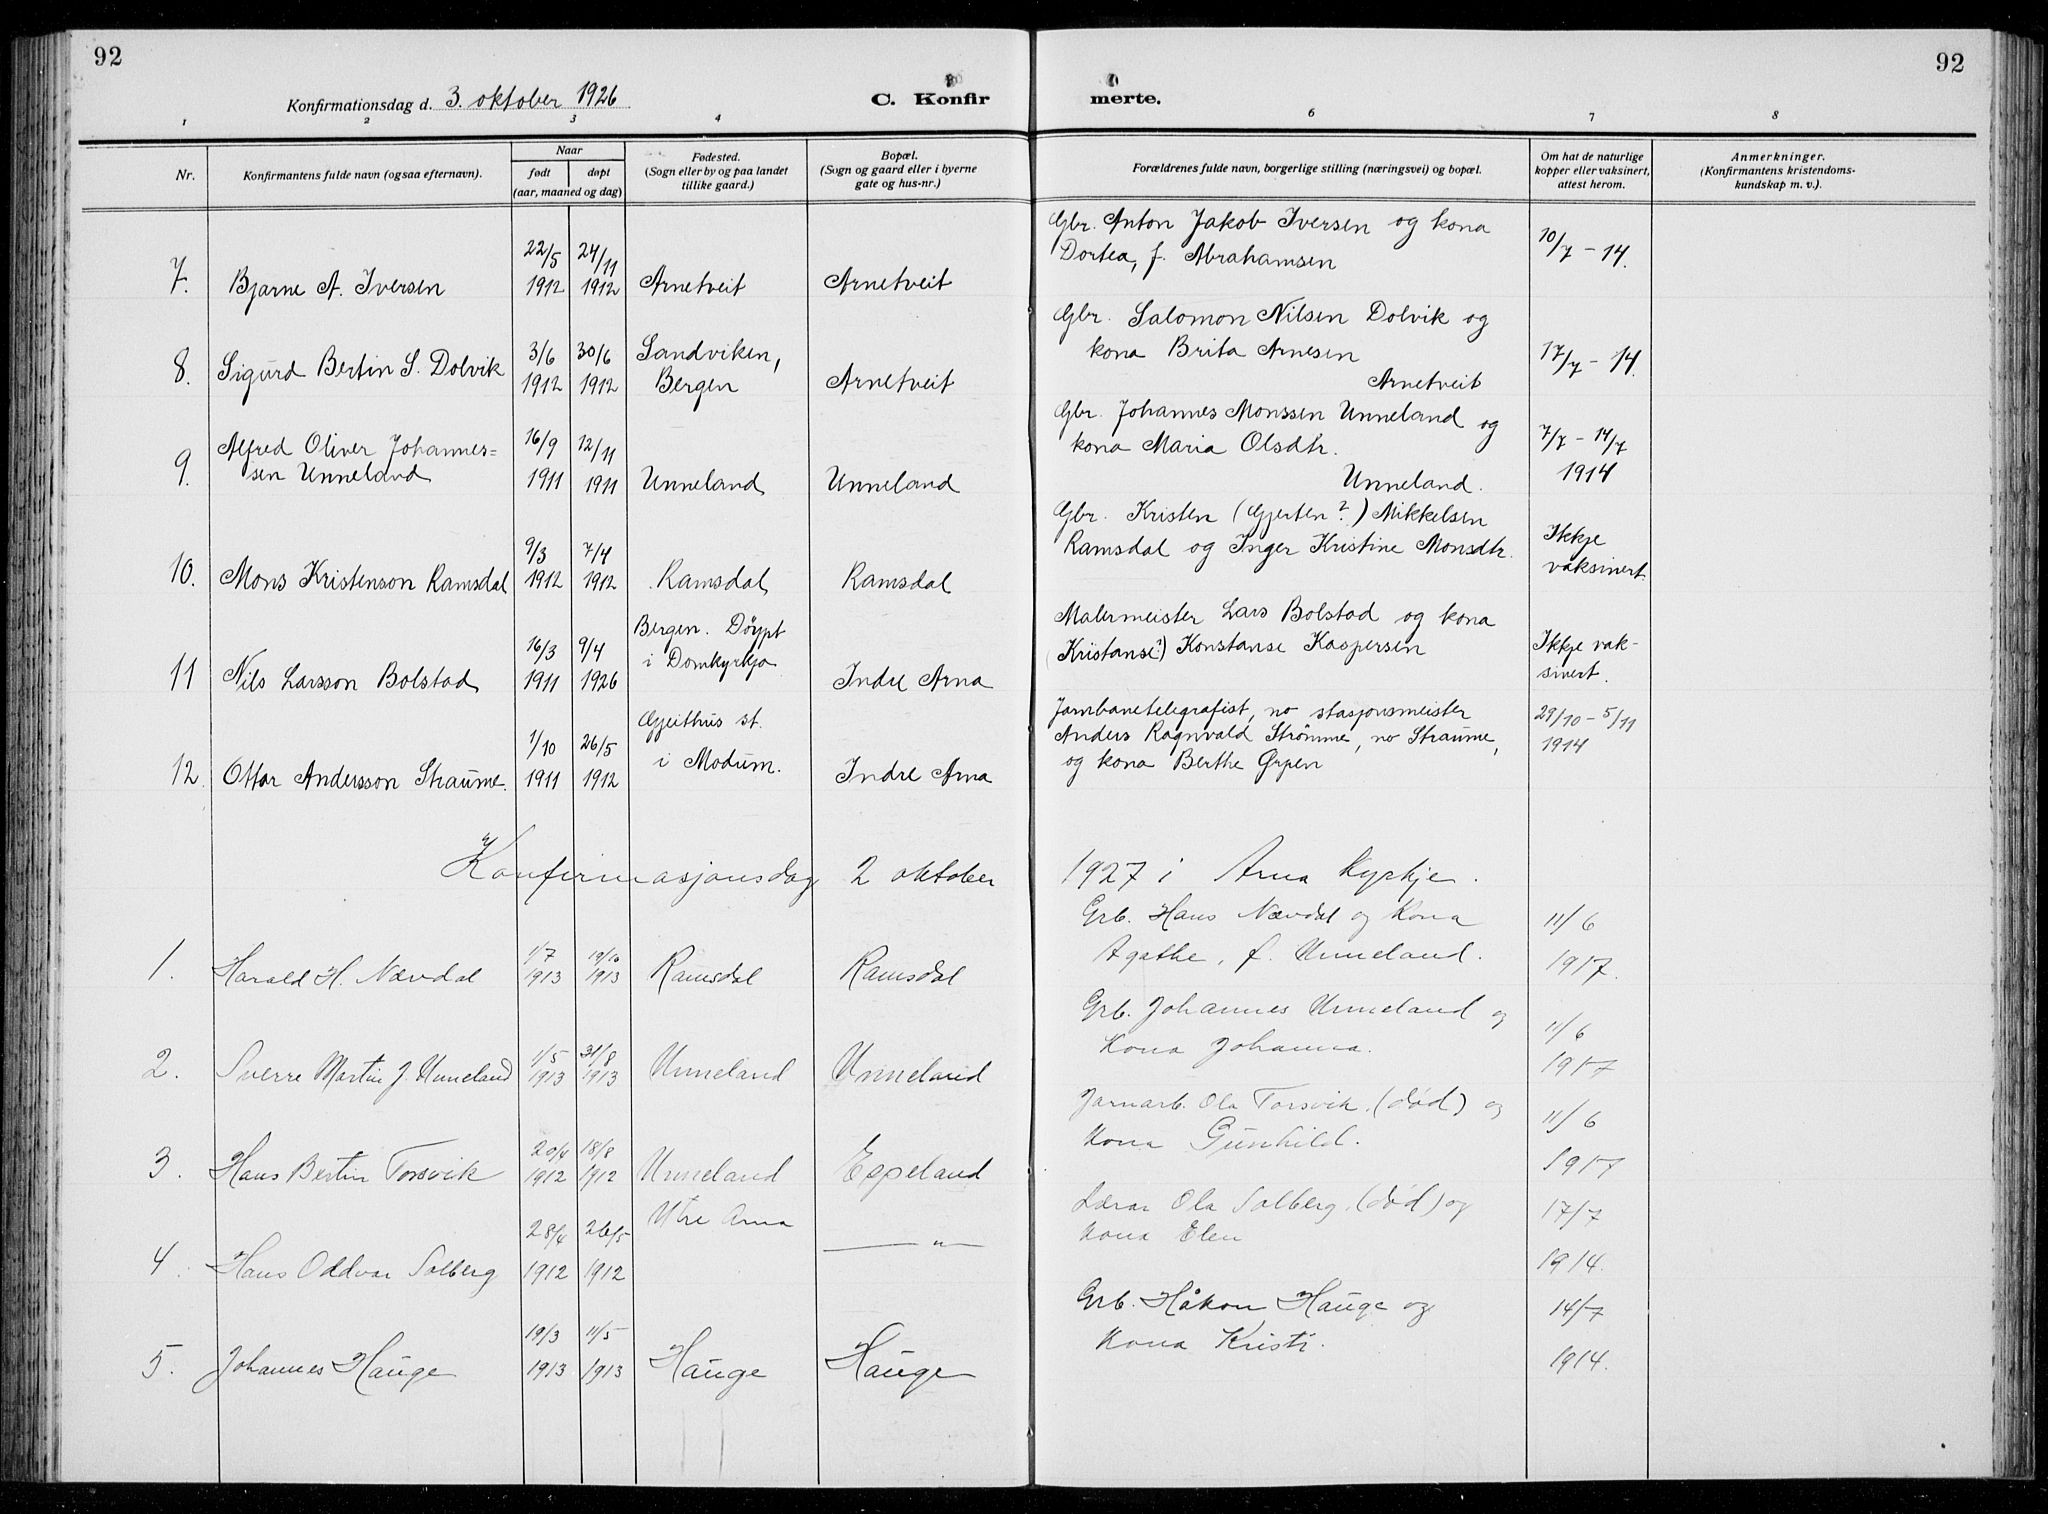 92
92
Konfirmationsdag d. 3. oktober 1926
C. Konfir
merte.
1 2 3 4 6 7 8
Nr.
Konfirmantens fulde navn (ogsaa efternavn).
Naar
født
døpt
(aar, maaned og dag)
Fødested.
(Sogn eller by og paa landet
tillike gaard.)
Bopæl.
(Sogn og gaard eller i byerne
gate og hus-nr.)
Forældrenes fulde navn, borgerlige stilling (næringsvei) og bopæl.
Om hat de naturlige
kopper eller vaksinert,
attest herom.
Anmerkninger.
(Konfirmantens kristendoms-
kundskap m. v.).
Gbr. Anton Jakob Iversen og kona
22/5 24/11 Dortea, f. Abrahamsen 10/7 - 14.
7. Bjarne A. Iversen 1912 1912 Arnetveit Arnetveit
Gbr. Salomon Nilsen Dolvik og
3/6 30/6 Sandviken, kona Brita Arnesen 17/7 - 14.
8. Sigurd Bertin S. Dolvik 1912 1912 Bergen Arnetveit Arnetveit
Gbr. Johannes Monssen Unneland og
Alfred Oliver Johannes= 16/9 12/11 kona Maria Olsdtr. 7/7 - 14/7
9. sen Unneland 1911 1911 Unneland Unneland Unneland. 1914
Gbr. Kristen (Gjerten?) Mikkelsen
9/3 7/4 Ramsdal og Inger Kristine Monsdtr. Ikkje
10. Mons Kristenson Ramsdal 1912 1912 Ramsdal Ramsdal vaksinert
Bergen. Døypt Malermeister Lars Bolstad og kona
16/3 9/4 i Domkyrkja (Kristanse?) Konstanse Kaspersen Ikkje vak-
11 Nils Larsson Bolstad 1911 1926 Indre Arna sinert.
Gjeithus st. Jarnbanetelegrafist, no stasjonsmeister 29/10 - 5/11
1/10 26/5 i Modum. Anders Ragnvald Strømme, no Straume, 1914
12. Ottar Andersson Straume. 1911 1912 Indre Arna og kona Berthe Ørpen
Konfirmasjonsdag 2 oktober 1927 i Arna Kyrkje.
Grb. Hans Nævdal og Kona 11/6
1/7 19/10 Agathe, f. Unneland. 1917.
1. Harald H. Nævdal 1913 1913 Ramsdal Ramsdal
Grb. Johannes Unneland og 11/6
1/5 31/8 Kona Johanna. 1917
2. Sverre Martin J. Unneland 1913 1913 Unneland Unneland
Jarnarb. Ola Torsvik (død) og 11/6
20/4 18/8 kona Gunhild. 1917
3. Hans Bertin Torsvik 1912 1912 Unneland Espeland
28/4 26/5 Utre Arna Lærar Ola Solberg (død) og 17/7
4. Hans Oddvar Solberg 1912 1912 — " — kona Elen 1914.
Grb. Håkon Hauge og 14/7
19/3 11/5 kona Kristi. 1914.
5. Johannes Hauge 1913 1913 Hauge Hauge